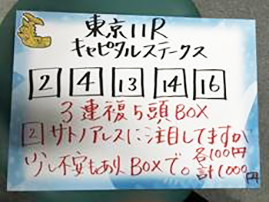 東京11R
キャピタルステークス
2 4 13 14 16
3連複5頭BOX
2 サトノアレスに注目してますが
少し不安もありBOXで。各100円
計1000円